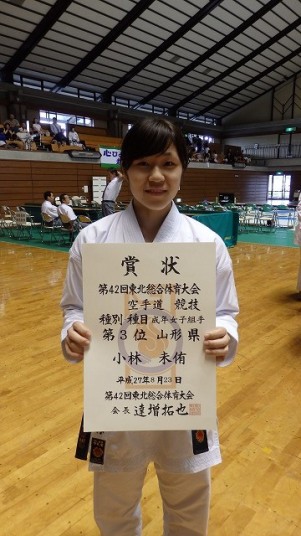 賞状
第42回東北総合体育大会
空手道 競技
種別 種目 成年女子組手
第3位 山形県
小林 未侑
平成27年8月23日
第42回東北総合体育大会
会長 達増拓也